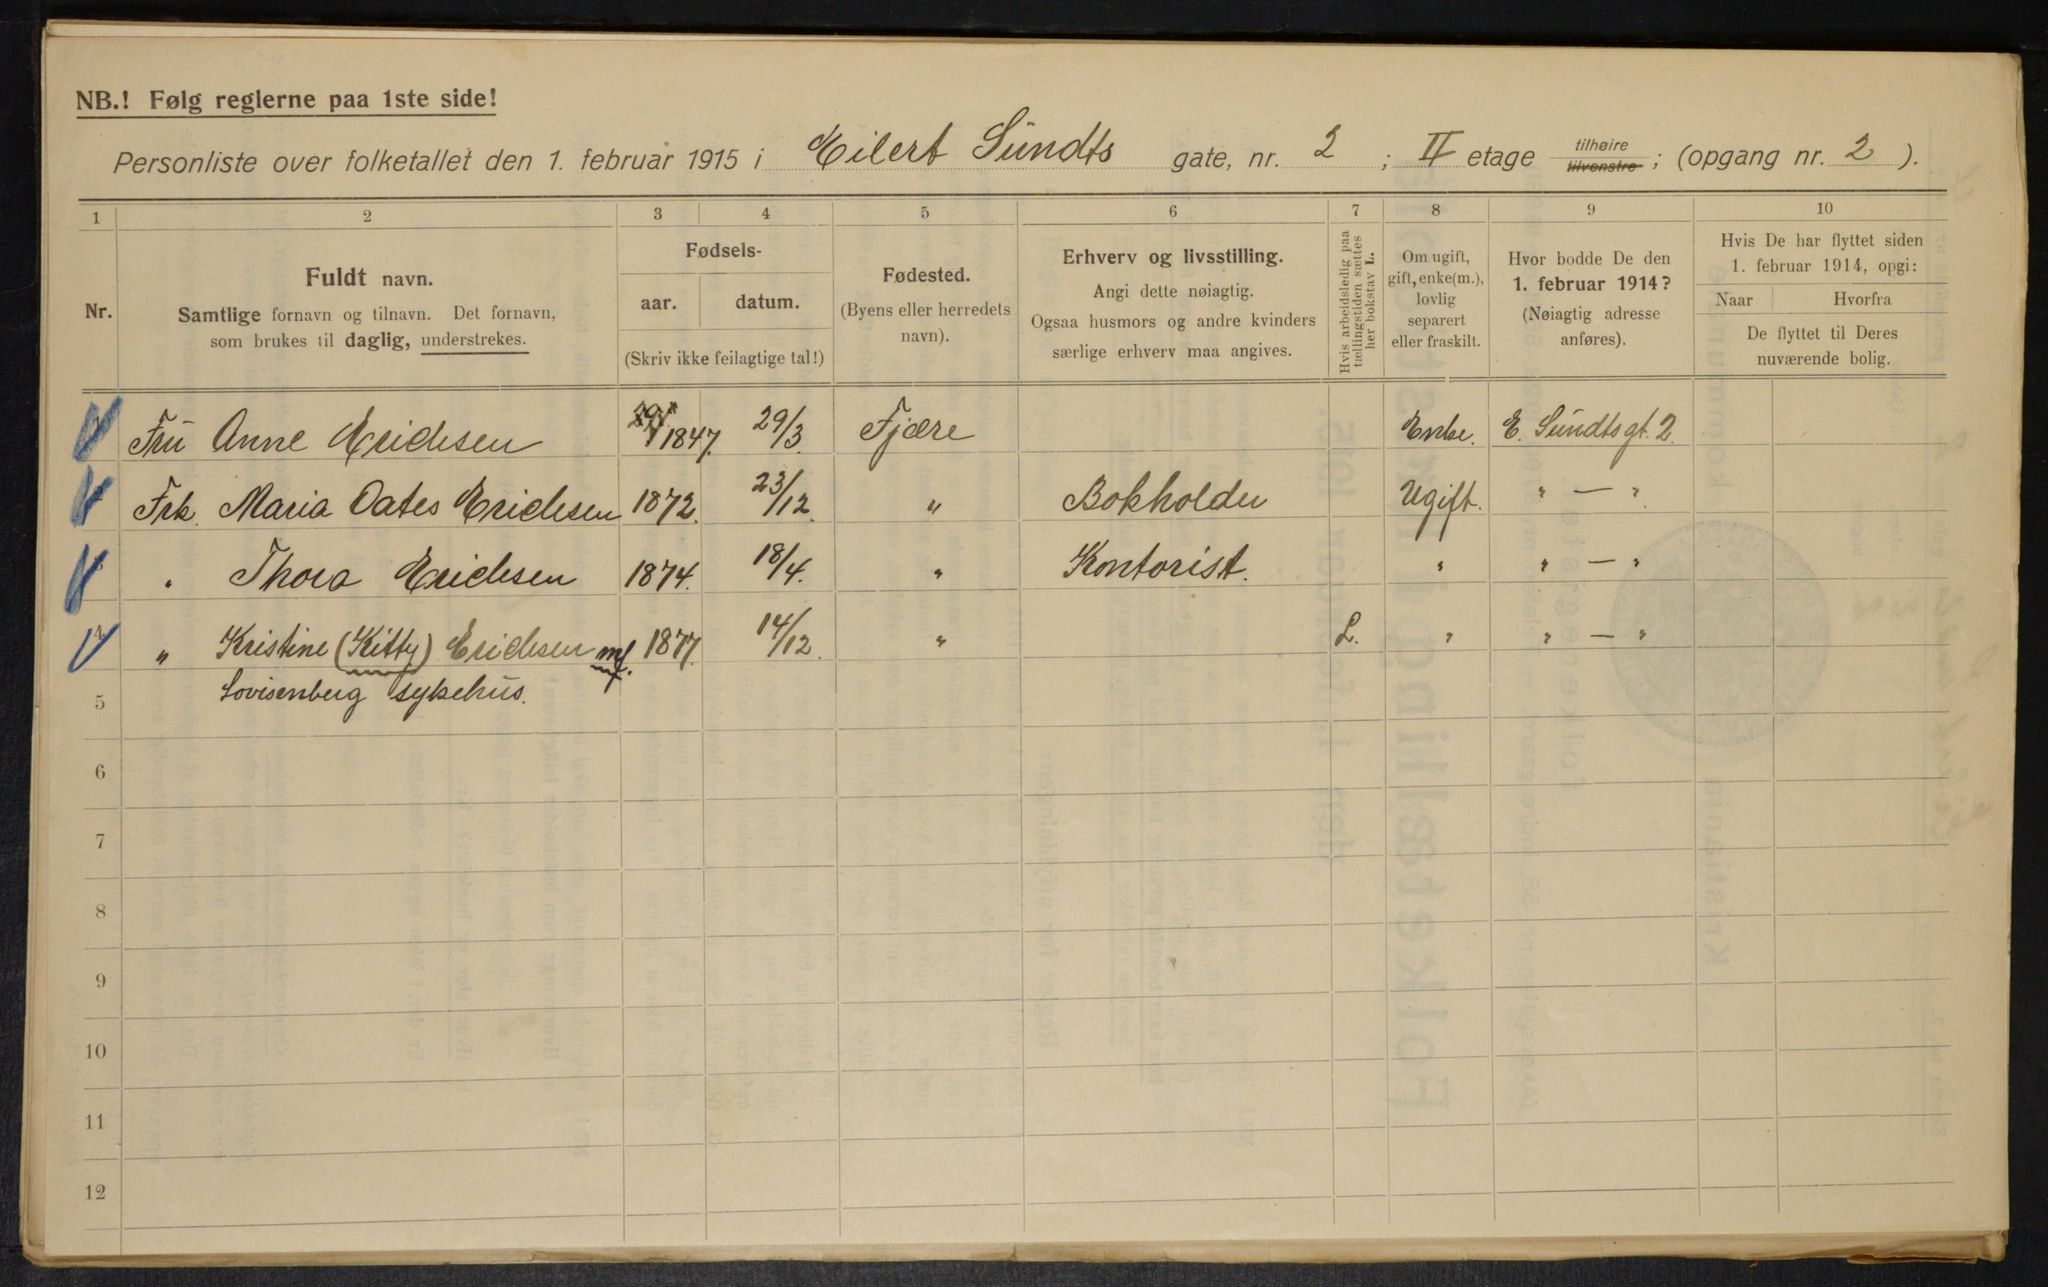 NB.! Følg reglerne paa 1ste side!
Personliste over folketallet den 1. februar 1915 i Eilert Sundts gate, nr. 2 ; II etage tilhøire tilvenstre ; (opgang nr. 2 ).
1 2 3 4 5 6 7 8 9 10
Nr.
Fuldt navn.
Samtlige fornavn og tilnavn. Det fornavn,
som brukes til daglig, understrekes.
Fødsels-
aar. datum.
(Skriv ikke feilagtige tal!)
Fødested.
(Byens eller herredets
navn).
Erhverv og livsstilling.
Angi dette nøiagtig.
Ogsaa husmors og andre kvinders
særlige erhverv maa angives.
Hvis arbeidsledig paa
tællingstiden sættes
her bokstav L.
Om ugift,
gift, enke(m.),
lovlig
separert
eller fraskilt.
Hvor bodde De den
1. februar 1914?
(Nøiagtig adresse
anføres).
Hvis De har flyttet siden
1. februar 1914, opgi:
Naar Hvorfra
De flyttet til Deres
nuværende bolig.
Fru Anne Ericksen 1847. 29/3. Fjære Enke. E. Sundts gt. 2
Frk. Maria Oates Ericksen 1872. 23/12. " Bokholder Ugift. " — "
" Thora Ericksen 1874. 18/4. " Kontorist. " " — "
4 " Kristine (Kitty) Ericksen 1877. 14/12. " L. " " — "
5 Lovisenberg sykehus.
6
7
8
9
10
11
12